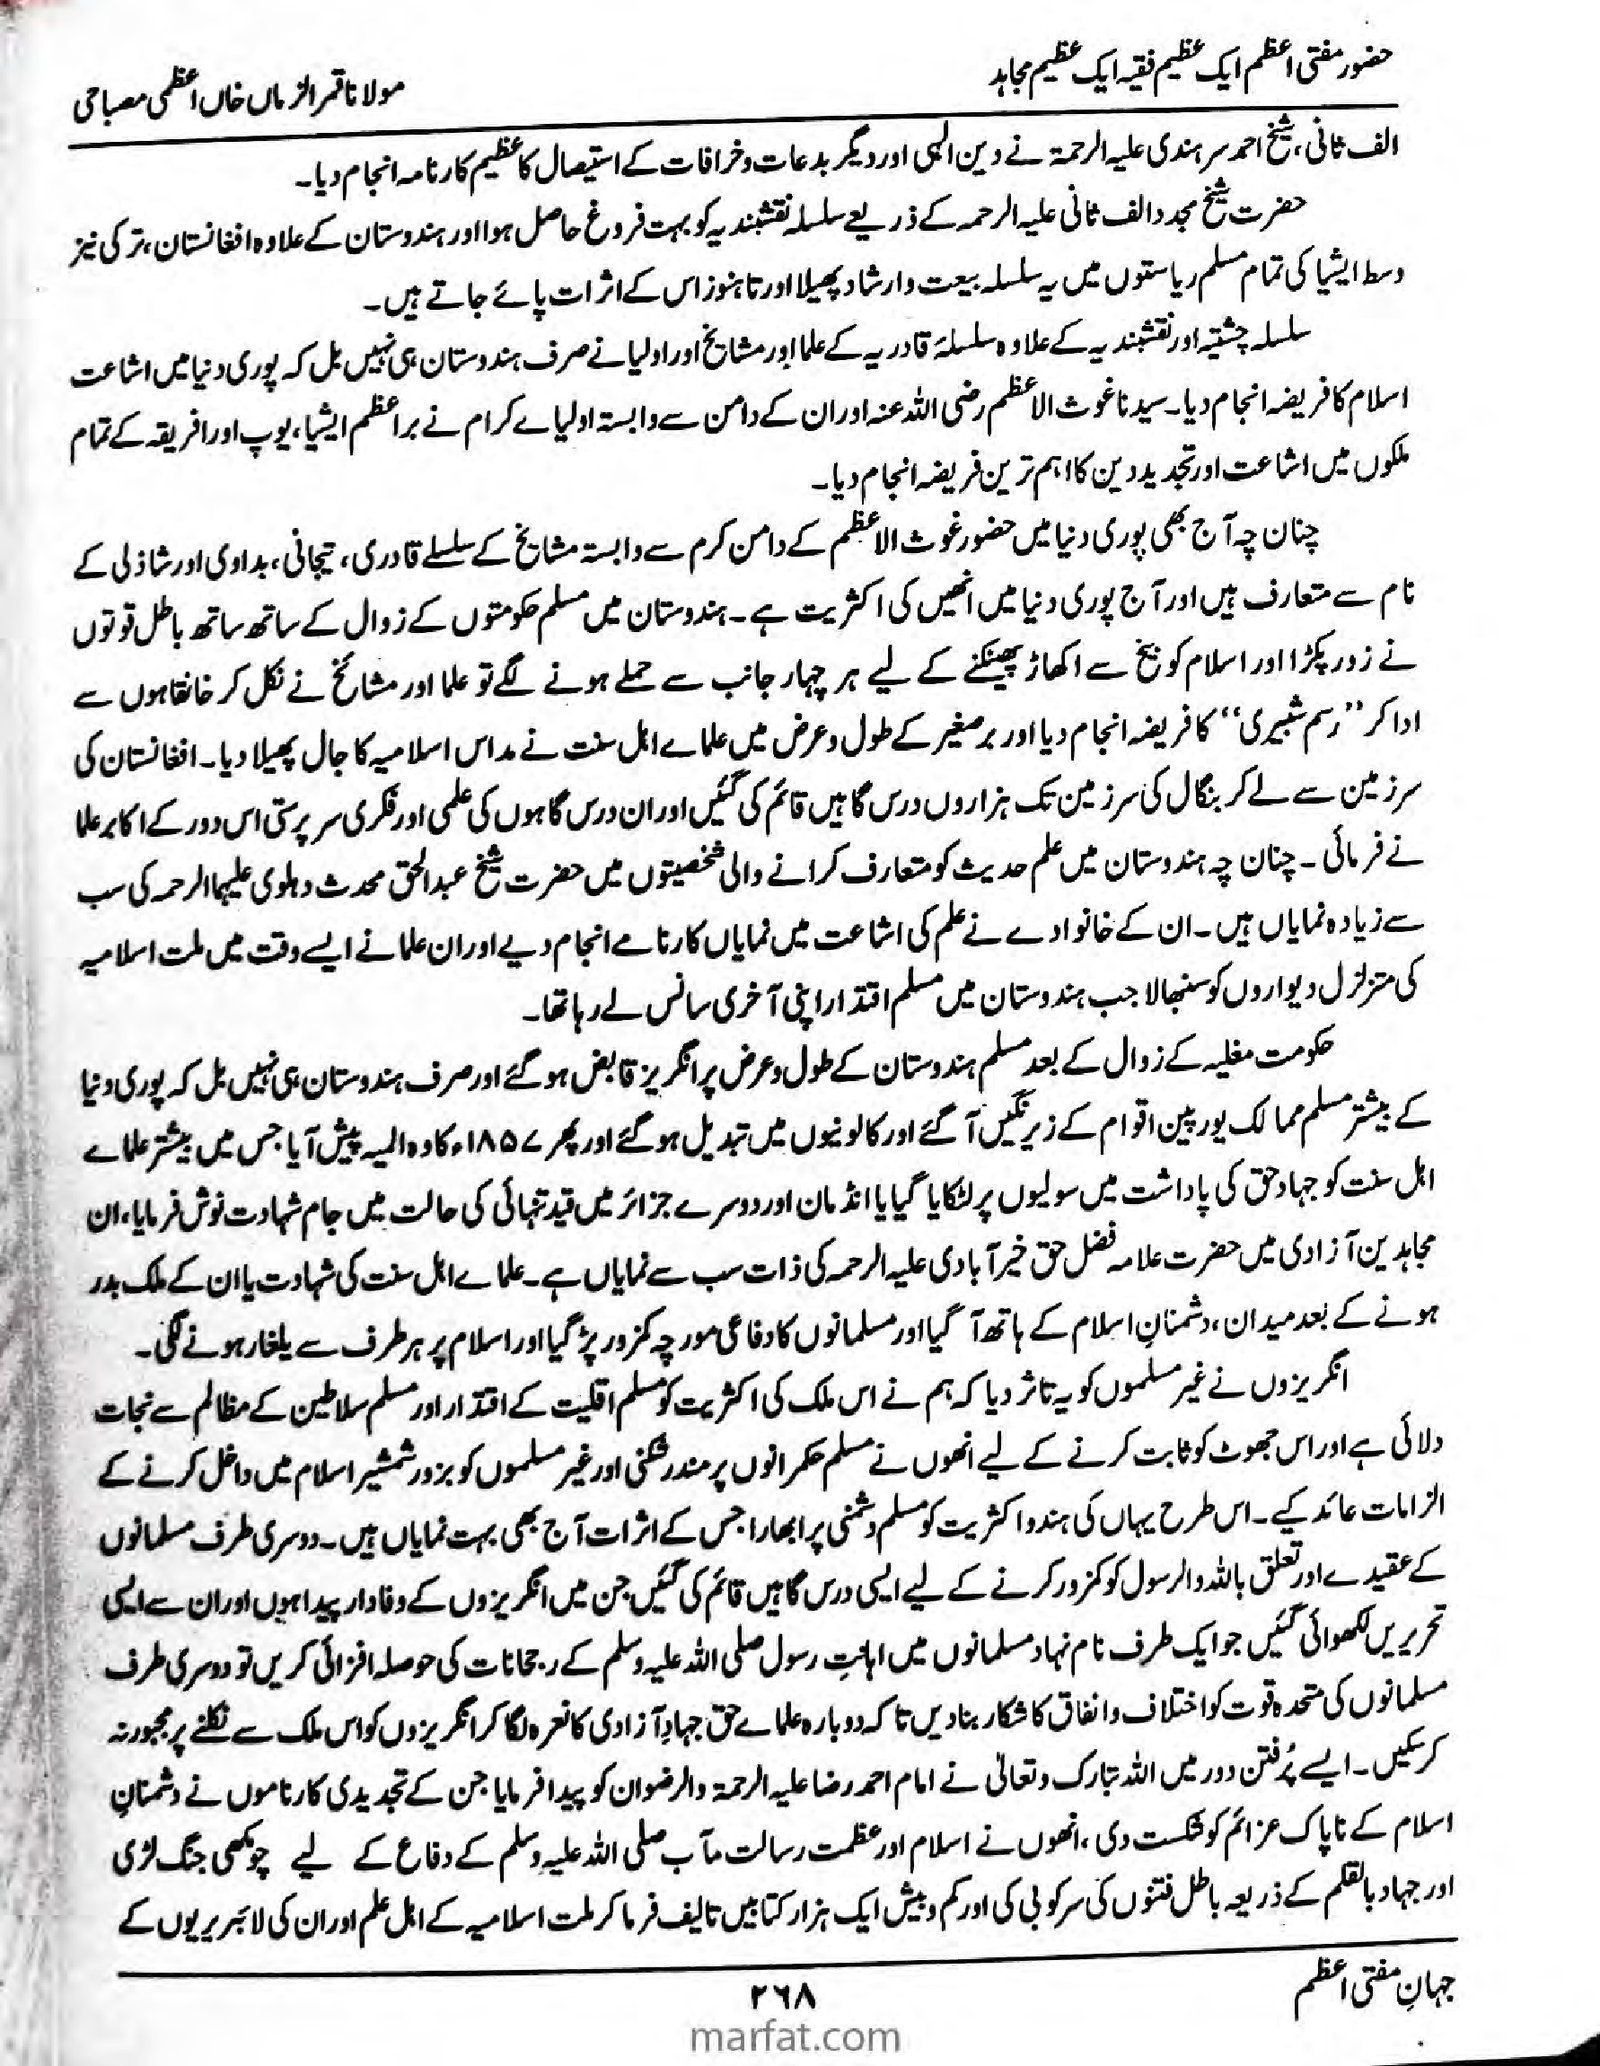 حضور مفتی اعظم ایک عظیم فقیہ ایک عظیم مجاہد
مولانا قمر الزماں خاں اعظمی مصباحی
الف ثانی، شیخ احمد سرہندی علیہ الرحمۃ نے دین الٰہی اور دیگر بدعات و خرافات کے استیصال کا عظیم کارنامہ انجام دیا۔
حضرت شیخ مجدد الف ثانی علیہ الرحمہ کے ذریعے سلسلہ نقشبندیہ کو بہت فروغ حاصل ہوا اور ہندوستان کے علاوہ افغانستان، ترکی نیز
وسط ایشیا کی تمام مسلم ریاستوں میں یہ سلسلہ بیعت و ارشاد پھیلا اور تا ہنوز اس کے اثرات پائے جاتے ہیں۔
سلسلہ چشتیہ اور نقشبندیہ کے علاوہ سلسلۂ قادریہ کے علما اور مشایخ اور اولیا نے صرف ہندوستان ہی نہیں بل کہ پوری دنیا میں اشاعت
اسلام کا فریضہ انجام دیا۔ سیدنا غوث الاعظم رضی اللہ عنہ اور ان کے دامن سے وابستہ اولیاے کرام نے براعظم ایشیا، یوپ اور افریقہ کے تمام
ملکوں میں اشاعت اور تجدید دین کا اہم ترین فریضہ انجام دیا۔
چنان چہ آج بھی پوری دنیا میں حضور غوث الاعظم کے دامن کرم سے وابستہ مشایخ کے سلسلے قادری، تیجانی، بداوی اور شاذلی کے
نام سے متعارف ہیں اور آج پوری دنیا میں انھیں کی اکثریت ہے۔ ہندوستان میں مسلم حکومتوں کے زوال کے ساتھ ساتھ باطل قوتوں
نے زور پکڑا اور اسلام کو بیخ سے اکھاڑ پھینکنے کے لیے ہر چہار جانب سے حملے ہونے لگے تو علما اور مشائخ نے نکل کر خانقاہوں سے
ادا کر ’’رسم شبیری‘‘ کا فریضہ انجام دیا اور برصغیر کے طول و عرض میں علماے اہل سنت نے مداس اسلامیہ کا جال پھیلا دیا۔ افغانستان کی
سرزمین سے لے کر بنگال کی سرزمین تک ہزاروں درس گاہیں قائم کی گئیں اور ان درس گاہوں کی علمی اور فکری سرپرستی اس دور کے اکابر علما
نے فرمائی۔ چنان چہ ہندوستان میں علم حدیث کو متعارف کرانے والی شخصیتوں میں حضرت شیخ عبدالحق محدث دہلوی علیہما الرحمہ کی سب
سے زیادہ نمایاں ہیں۔ ان کے خانوادے نے علم کی اشاعت میں نمایاں کارنامے انجام دیے اور ان علما نے ایسے وقت میں ملت اسلامیہ
کی متزلزل دیواروں کو سنبھالا جب ہندوستان میں مسلم اقتدار اپنی آخری سانس لے رہا تھا۔
حکومت مغلیہ کے زوال کے بعد مسلم ہندوستان کے طول و عرض پر انگریز قابض ہو گئے اور صرف ہندوستان ہی نہیں بل کہ پوری دنیا
کے بیشتر مسلم ممالک یورپین اقوام کے زیر نگیں آ گئے اور کالونیوں میں تبدیل ہو گئے اور پھر ۱۸۵۷ء کا وہ المیہ پیش آیا جس میں بیشتر علماے
اہل سنت کو جہاد حق کی پاداشت میں سولیوں پر لٹکایا گیا یا انڈمان اور دوسرے جزائر میں قید تنہائی کی حالت میں جام شہادت نوش فرمایا، ان
مجاہدین آزادی میں حضرت علامہ فضل حق خیرآبادی علیہ الرحمہ کی ذات سب سے نمایاں ہے۔ علماے اہل سنت کی شہادت یا ان کے ملک بدر
ہونے کے بعد میدان، دشمنانِ اسلام کے ہاتھ آ گیا اور مسلمانوں کا دفاعی مورچہ کمزور پڑ گیا اور اسلام پر ہر طرف سے یلغار ہونے لگی۔
انگریزوں نے غیر مسلموں کو یہ تاثر دیا کہ ہم نے اس ملک کی اکثریت کو مسلم اقلیت کے اقتدار اور مسلم سلاطین کے مظالم سے نجات
دلائی ہے اور اس جھوٹ کو ثابت کرنے کے لیے انھوں نے مسلم حکمرانوں پر مندر شکنی اور غیر مسلموں کو بزور شمشیر اسلام میں داخل کرنے کے
الزامات عائد کیے۔ اس طرح یہاں کی ہندو اکثریت کو مسلم دشمنی پر ابھارا جس کے اثرات آج بھی بہت نمایاں ہیں۔ دوسری طرف مسلمانوں
کے عقیدے اور تعلق باللہ والرسول کو کمزور کرنے کے لیے ایسی درس گاہیں قائم کی گئیں جن میں انگریزوں کے وفادار پیدا ہوں اور ان سے ایسی
تحریریں لکھوائی گئیں جو ایک طرف نام نہاد مسلمانوں میں اہانتِ رسول صلی اللہ علیہ وسلم کے رجحانات کی حوصلہ افزائی کریں تو دوسری طرف
مسلمانوں کی متحدہ قوت کو اختلاف و انفاق کا شکار بنا دیں تاکہ دوبارہ علماے حق جہادِ آزادی کا نعرہ لگا کر انگریزوں کو اس ملک سے نکلنے پر مجبور نہ
کر سکیں۔ ایسے پُرفتن دور میں اللہ تبارک و تعالیٰ نے امام احمد رضا علیہ الرحمۃ والرضوان کو پیدا فرمایا جن کے تجدیدی کارناموں نے دشمنانِ
اسلام کے ناپاک عزائم کو شکست دی، انھوں نے اسلام اور عظمت رسالت مآب صلی اللہ علیہ وسلم کے دفاع کے لیے چومکھی جنگ لڑی
اور جہاد بالقلم کے ذریعہ باطل فتنوں کی سرکوبی کی اور کم و بیش ایک ہزار کتابیں تالیف فرما کر ملت اسلامیہ کے اہل علم اور ان کی لائبریریوں کے
جہانِ مفتی اعظم
۲۶۸
marfat.com